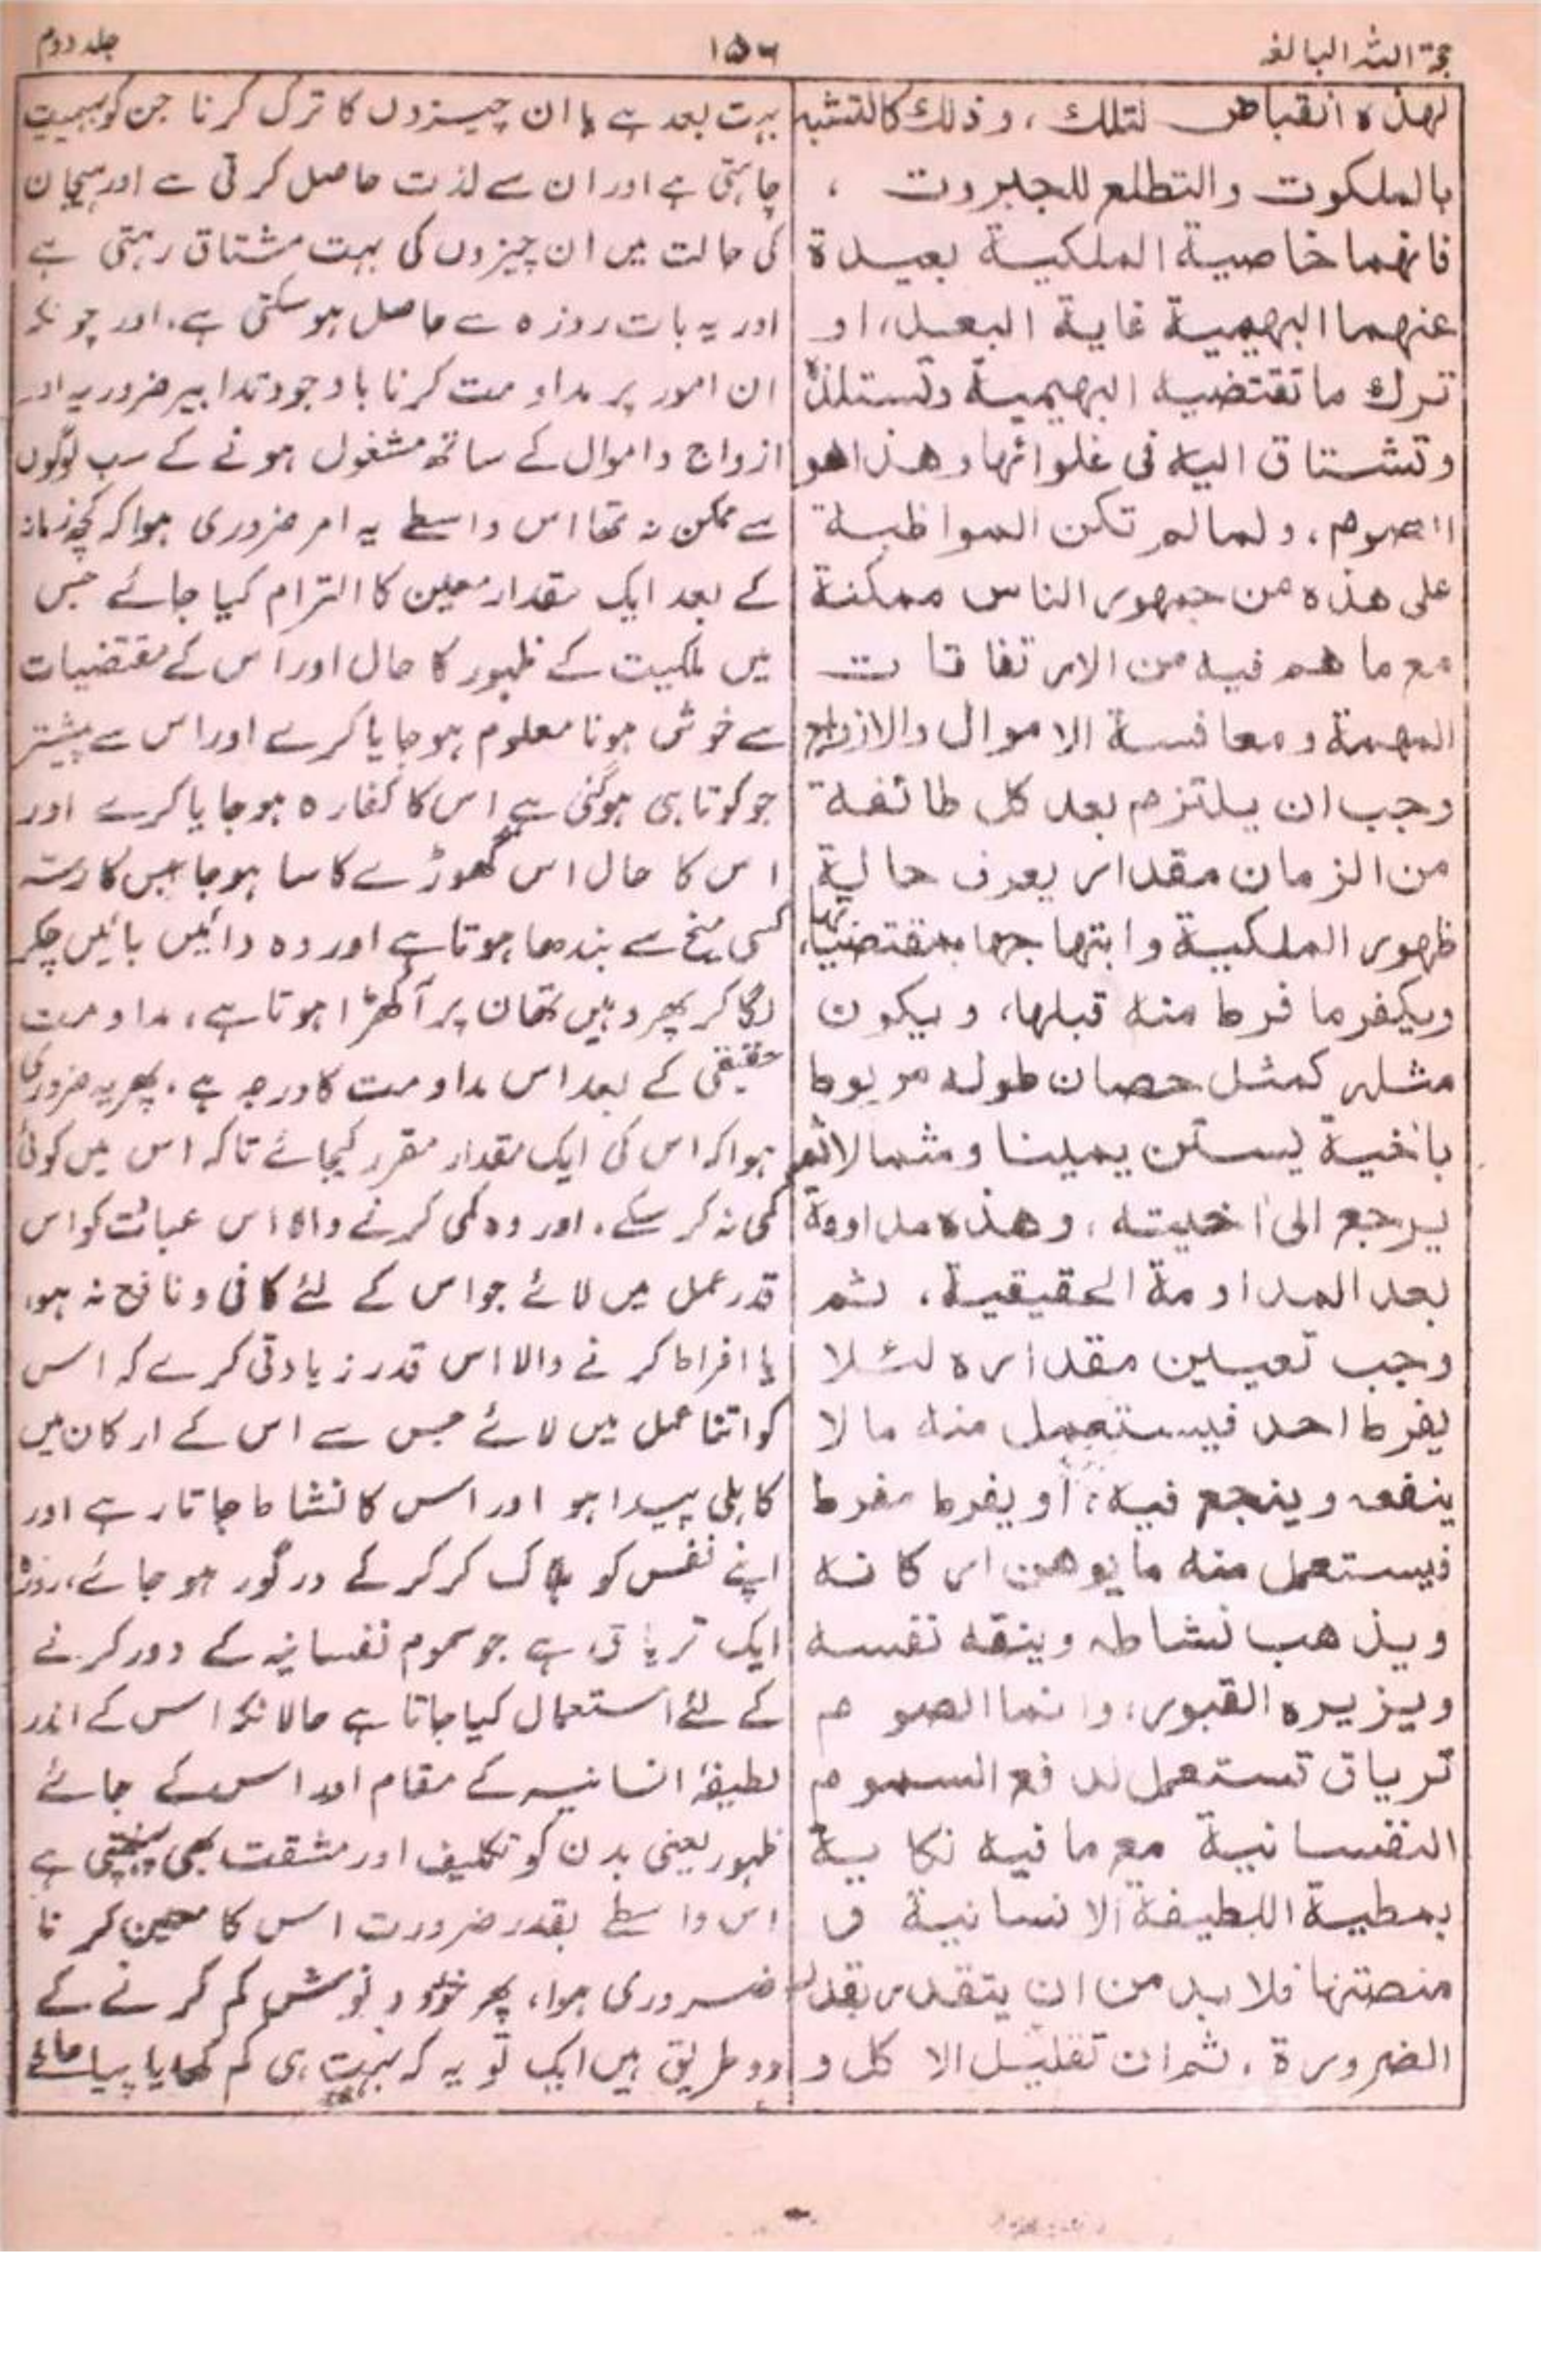 حجۃ اللہ البالغہ
۱۵۶
جلد دوم
لهذه انقباض لتلك ، وذلك كالتشبه
بالملكوت والتطلع للجبروت ،
فانهما خاصية الملكية بعيدة
عنهما البهيمية غاية البعد، او
ترك ما تقتضيه البهيمية وتستلذه
وتشتاق اليه فى غلوائها وهذا هو
الصوم، ولما لم تكن المواظبة
على هذه من جمهور الناس ممكنة
مع ما هم فيه من الارتفاقات
المهمة ومعافسة الاموال والازواج
وجب ان يلتزم بعد كل طائفة
من الزمان مقدار يعرف حالية
ظهور الملكية وابتهاجها بمقتضياتها،
ويكفر ما فرط منه قبلها، ويكون
مثله كمثل حصان طوله مربوط
باخية يستن يمينا وشمالا ثم
يرجع الى اخيته ، وهذه مداومة
بعد المداومة الحقيقية ، ثم
وجب تعيين مقداره لئلا
يفرط احد فيستعمل منه ما لا
ينفعه وينجع فيه ، أو يفرط مفرط
فيستعمل منه ما يوهن اركانه
ويذهب نشاطه وينفه نفسه
ويزيره القبور، وانما الصوم
ترياق تستعمل لدفع السموم
النفسانية مع ما فيه نكاية
بمطية اللطيفة الانسانية و
منصتها فلا بد من ان يتقدر بقدر
الضرورة ، ثم ان تقليل الاكل و
بہت بعد ہے یا ان چیزوں کا ترک کرنا جن کو بہیمیت
چاہتی ہے اور ان سے لذت حاصل کرتی ہے اور ہیجان
کی حالت میں ان چیزوں کی بہت مشتاق رہتی ہے
اور یہ بات روزہ سے حاصل ہو سکتی ہے، اور چونکہ
ان امور پر مداومت کرنا باوجود تدابیر ضروریہ اور
ازواج و اموال کے ساتھ مشغول ہونے کے سب لوگوں
سے ممکن نہ تھا اس واسطے یہ امر ضروری ہوا کہ کچھ زمانہ
کے بعد ایک مقدار معین کا التزام کیا جائے جس
میں ملکیت کے ظہور کا حال اور اس کے مقتضیات
سے خوش ہونا معلوم ہو جایا کرے اور اس سے پیشتر
جو کوتاہی ہوگئی ہے اس کا کفارہ ہو جایا کرے اور
اس کا حال اس گھوڑے کا سا ہو جا جس کا رستہ
کسی میخ سے بندھا ہوتا ہے اور وہ دائیں بائیں چکر
لگا کر پھر وہیں تھان پر آ کھڑا ہوتا ہے، مداومت
حقیقی کے بعد اس مداومت کا درجہ ہے، پھر یہ ضروری
ہوا کہ اس کی ایک مقدار مقرر کیجائے تاکہ اس میں کوئی
کمی نہ کر سکے، اور وہ کمی کرنے والا اس عبادت کو اس
قدر عمل میں لائے جو اس کے لئے کافی و نافع نہ ہو،
یا افراط کرنے والا اس قدر زیادتی کرے کہ اس
کو اتنا عمل میں لائے جس سے اس کے ارکان میں
کاہلی پیدا ہو اور اس کا نشاط جاتا رہے اور
اپنے نفس کو ہلاک کر کر کے درگور ہو جائے، روزہ
ایک تریاق ہے جو سموم نفسانیہ کے دور کرنے
کے لئے استعمال کیا جاتا ہے حالانکہ اس کے اندر
لطیفۂ انسانیہ کے مقام اور اس کے جائے
ظہور یعنی بدن کو تکلیف اور مشقت بھی پہنچتی ہے
اس واسطے بقدر ضرورت اس کا معین کرنا
ضروری ہوا، پھر خورد و نوش کم کرنے کے
دو طریق ہیں ایک تو یہ کہ بہت ہی کم کھایا پیا جائے